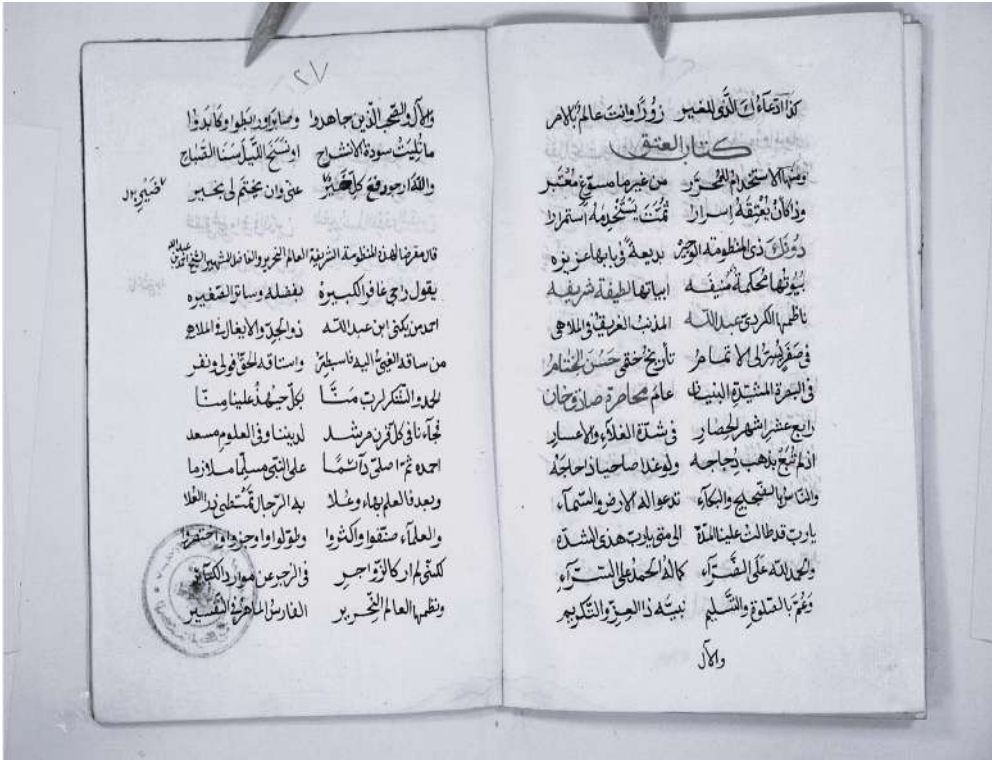 كذا ادعاءك الذى للغير زورا وانت عالم بالامر
كتاب العتق
ومنها الاستخدام للمحرر من غير ما مسوغ معتبر
وذا كأن يعتقه اسرارا ثمت يستخدمه استمرارا
دونك ذى المنظومة الوجيزه بديعة فى بابها عزيزه
بيوتها محكمة منيفه ابياتها لطيفة شريفه
ناظمها الكردى عبد الله المذنب الغريق فى الملاهى
فى صفر يسر لى الاتمام تأريخ حقى حسن الختام
فى البصرة المشيدة البنيان عام محاصرة صادق خان
رابع عشر اشهر الحصار فى شدة الغلاء والاعسار
اذ لم تبع بذهب دجاجه ولو غدا صاحبها ذا حاجه
والناس بالضجيج والبكاء تدعو اله الارض والسماء
يارب قد طالت علينا المدة الى متى يارب هذى الشده
والحمد لله على الضراء كما له الحمد على السراء
وعم بالصلوة والتسليم نبيه ذا العز والتكريم
والآل
والآل والصحب الذين جاهدوا وصابروا ورابطوا وكابدوا
ما تليت سورة الانشراح او نسخ الليل سنا الصباح
والله ارجو رفع كل ضير عنى وان يختم لى بخير
قال مقرضا لهذه المنظومة الشريفة العالم النحرير والفاضل الشهير الشيخ احمد بن عبد الله
يقول راجى غافر الكبيره بفضله وساتر الصغيره
احمد من يكنى ابن عبد الله ذو الجد والايغال فى الملاهى
من ساقه الغى اليه فاسبطر واستاقه الحق فولى ونفر
الحمد والشكر لرب منا بكل حبر علينا منا
فجاءنا فى كل قرن مرشد لديننا وفى العلوم مسعد
احمده ثم اصلى دآئما على النبى مسلما ملازما
وبعد فالعلم بهاء وعلا به الرجال تمتطى ذرا العلا
والعلماء صنفوا واكثروا وطولوا واوجزوا واختصروا
لكننى لم ار كالزواجر فى الزجر عن موارد الكبائر
ونظمها العالم النحرير الفارس الماهر فى التفسير